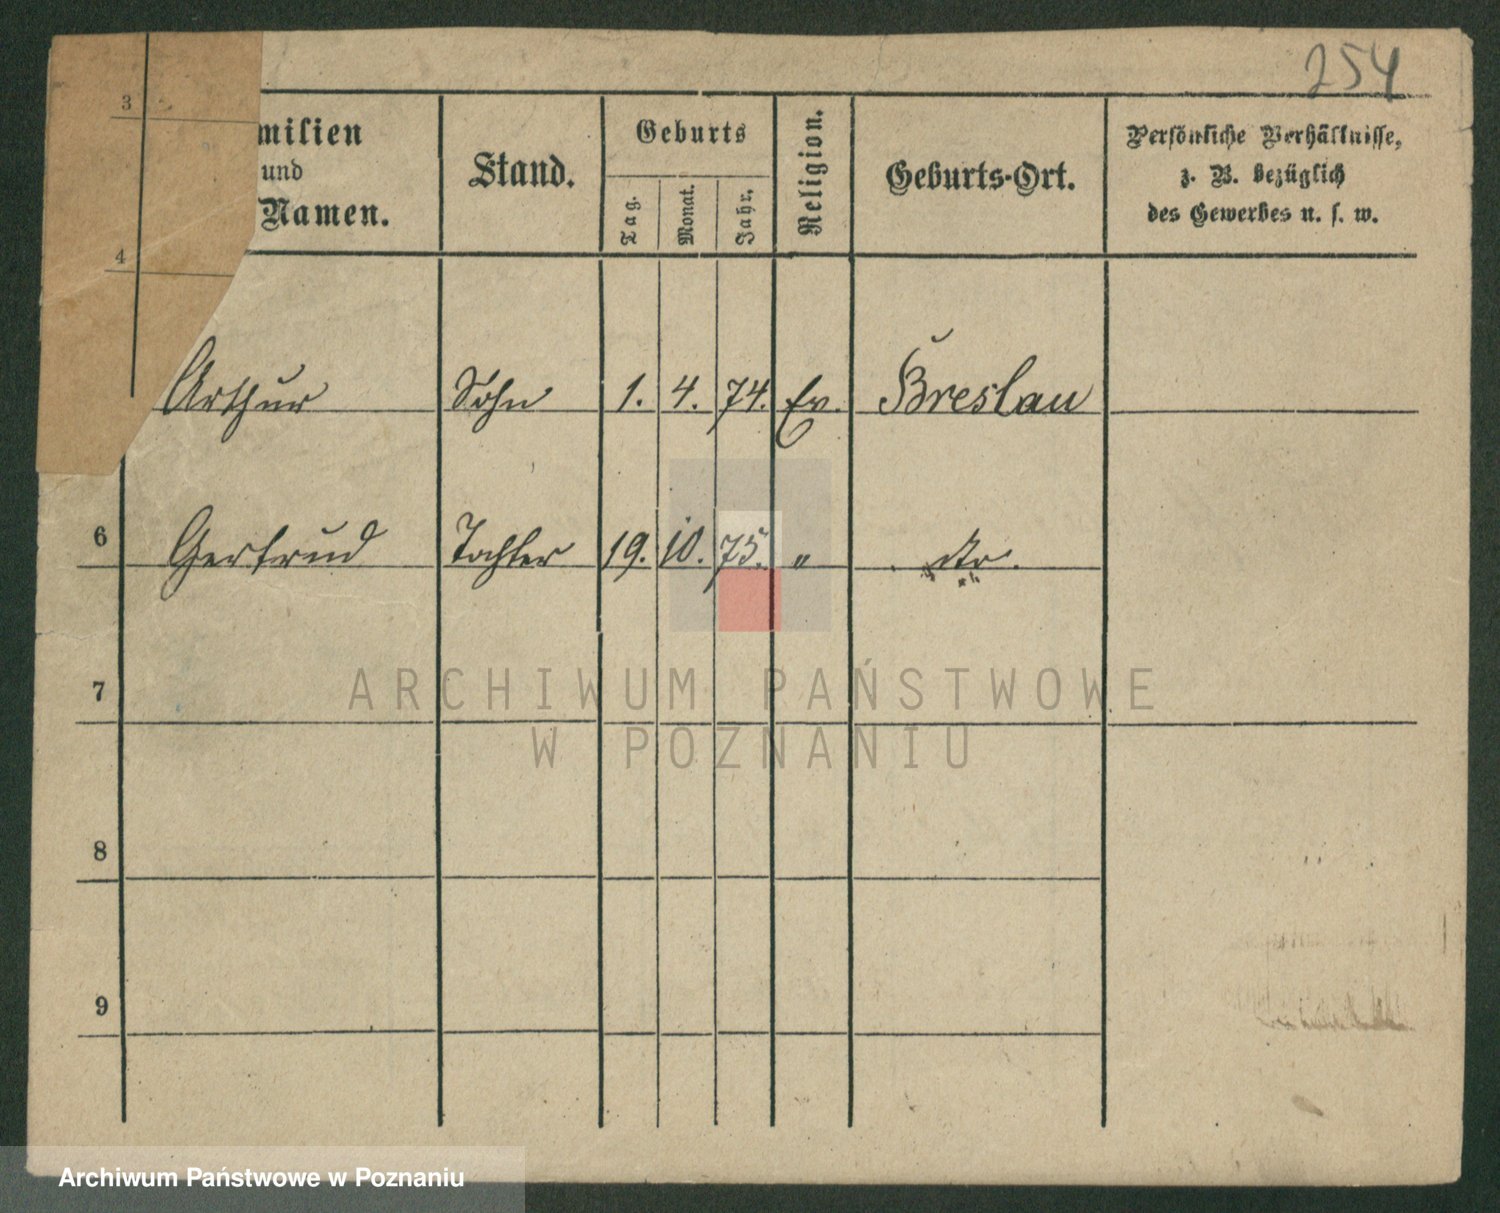 254
3
milien
und
Namen.
Stand.
Geburts
Tag.
Monat.
Jahr.
Religion.
Geburts-Ort.
Persönliche Verhältnisse,
z. B. bezüglich
des Gewerbes u. s. w.
4
Arthur Sohn 1. 4. 74. Ev. Breslau
6 Gertrud Tochter 19. 10. 75. "
7
ARCHIWUM PAŃSTWOWE
W POZNANIU
8
9
Archiwum Państwowe w Poznaniu